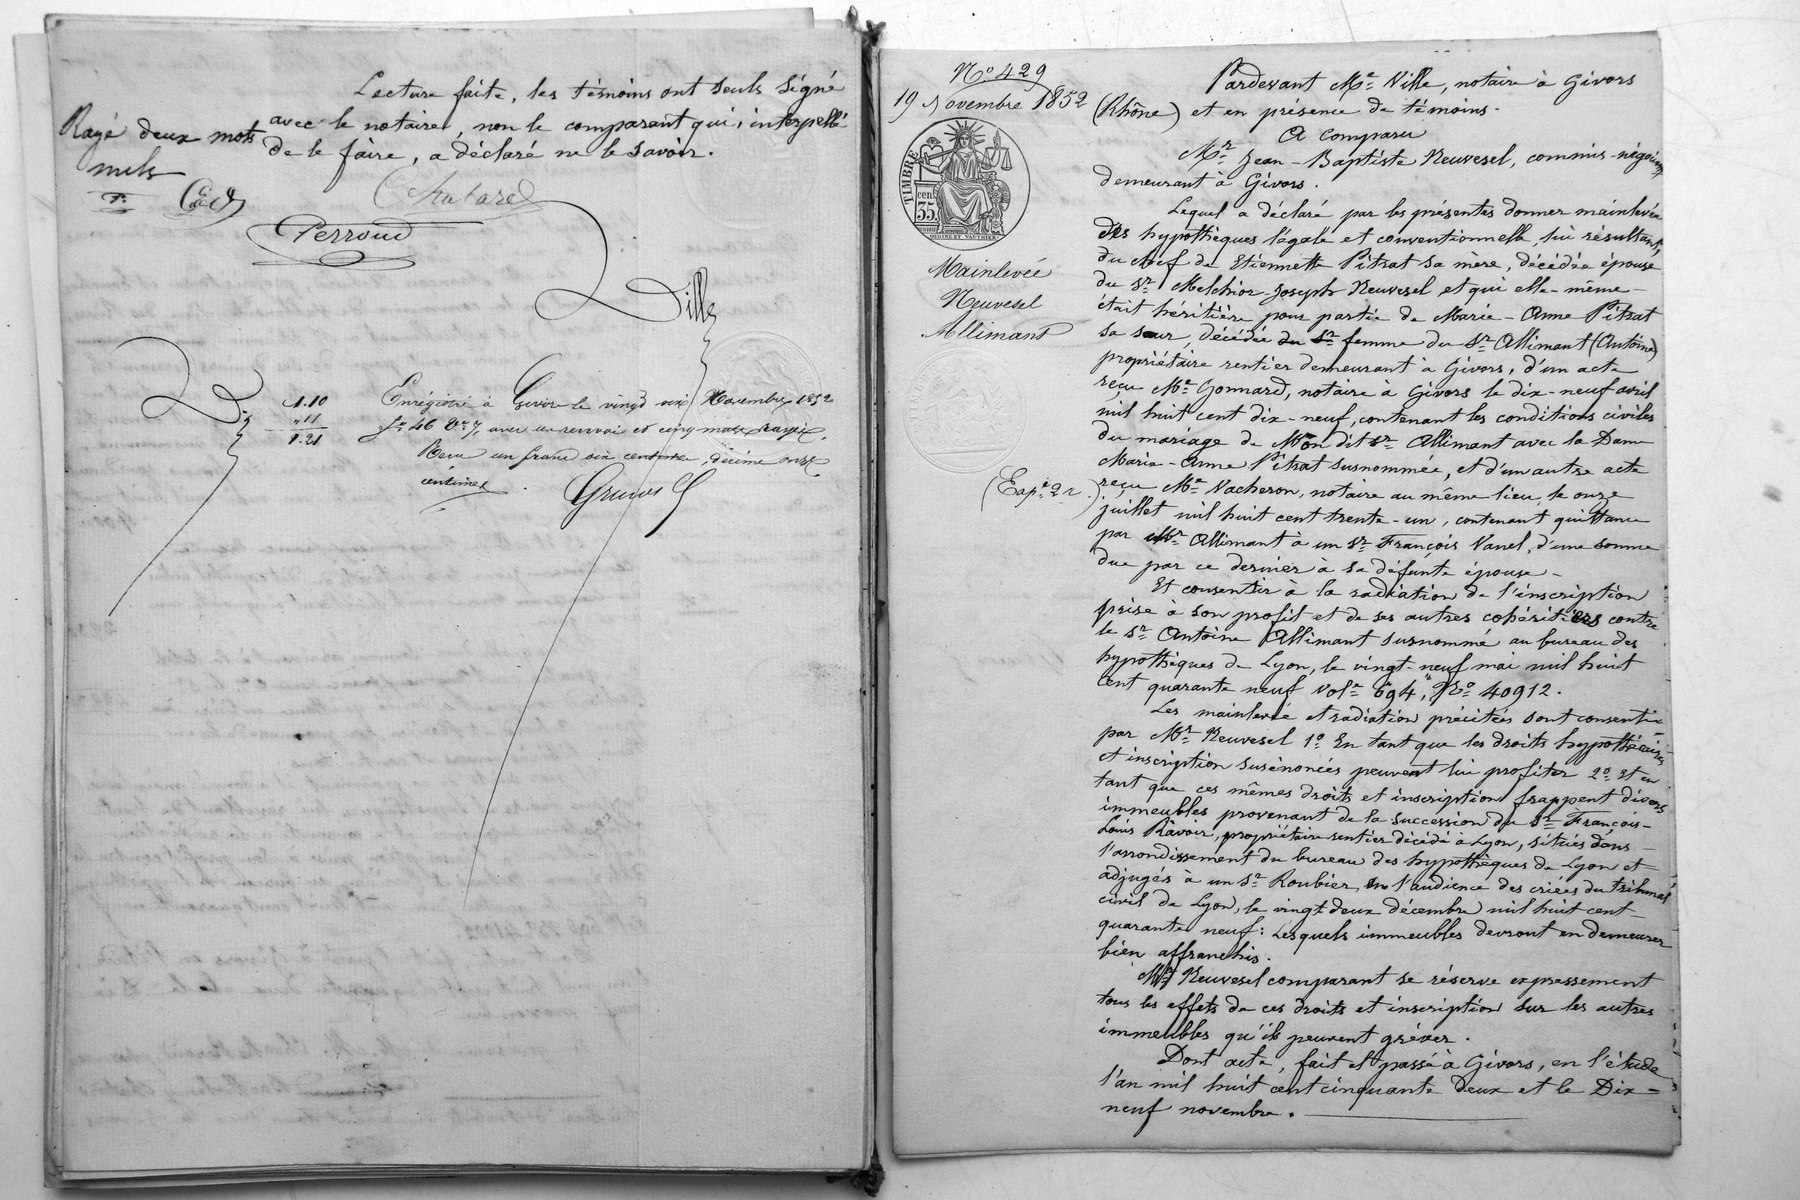 Lecture faite, les témoins ont seuls signé
avec le notaire, non le comparant qui, interpellé
de le faire, a déclaré ne le savoir.
Rayé deux mots
nuls
Chatard
Perroud
Ville
1.10
"11
1.21
Enrégistré à Givors le vingt six Novembre 1852
fo 46 Vo 7, avec un renvoi et cinq mots rayés,
Reçu un franc dix centimes, décime onze
centimes
No 429
19 Novembre 1852
TIMBRE
35 cen
Mainlevée
Neuvesel
Allimant
(Expé. 2 r.)
Pardevant Me Ville, notaire à Givors
(Rhône) et en présence de témoins.
A Comparu
Mr Jean-Baptiste Neuvesel, commis-négociant,
demeurant à Givors.
Lequel a déclaré par les présentes donner mainlevée
des hypothèques légale et conventionnelle, lui résultant,
du chef de Etiennette Pitrat sa mère, décédée épouse
du Sr Melchior-Joseph Neuvesel et qui elle-même
était héritière pour partie de Marie-Anne Pitrat
sa sœur, décédée du Sr femme du Sr Allimant (Antoine)
propriétaire rentier demeurant à Givors, d'un acte
reçu Me Gonnard, notaire à Givors le dix-neuf avril
mil huit cent dix-neuf, contenant les conditions civiles
du mariage de Mon dit Sr Allimant avec la Dame
Marie-Anne Pitrat susnommée, et d'un autre acte
reçu Me Vacheron, notaire au même lieu, le onze
juillet mil huit cent trente-un, contenant quittance
par Mr Allimant à un Sr François Vanel, d'une somme
due par ce dernier à sa défunte épouse-
Et consentir à la radiation de l'inscription
prise à son profit et de ses autres cohéritiers contre
le Sr Antoine Allimant susnommé au bureau des
hypothèques de Lyon, le vingt-neuf mai mil huit
cent quarante neuf vole 694, No 40912.
Les mainlevée et radiation précitées sont consenties
par Mr Neuvesel 1o En tant que les droits hypothécaires
et inscription susénoncés peuvent lui profiter 2o Et en
tant que ces mêmes droits et inscription frappent divers
immeubles provenant de la succession du Sr François-
Louis Ravoir, propriétaire rentier décédé à Lyon, situés dans
l'arrondissement du bureau des hypothèques de Lyon et
adjugés à un Sr Roubier, en l'audience des criées du tribunal
civil de Lyon, le vingt deux décembre mil huit cent
quarante neuf: Lesquels immeubles devront en demeurer
bien affranchis.
Mr Neuvesel comparant se réserve expressement
tous les effets de ces droits et inscription sur les autres
immeubles qu'ils peuvent gréver.
Dont acte, fait et passé à Givors, en l'étude
l'an mil huit cent cinquante deux et le Dix-
neuf novembre.